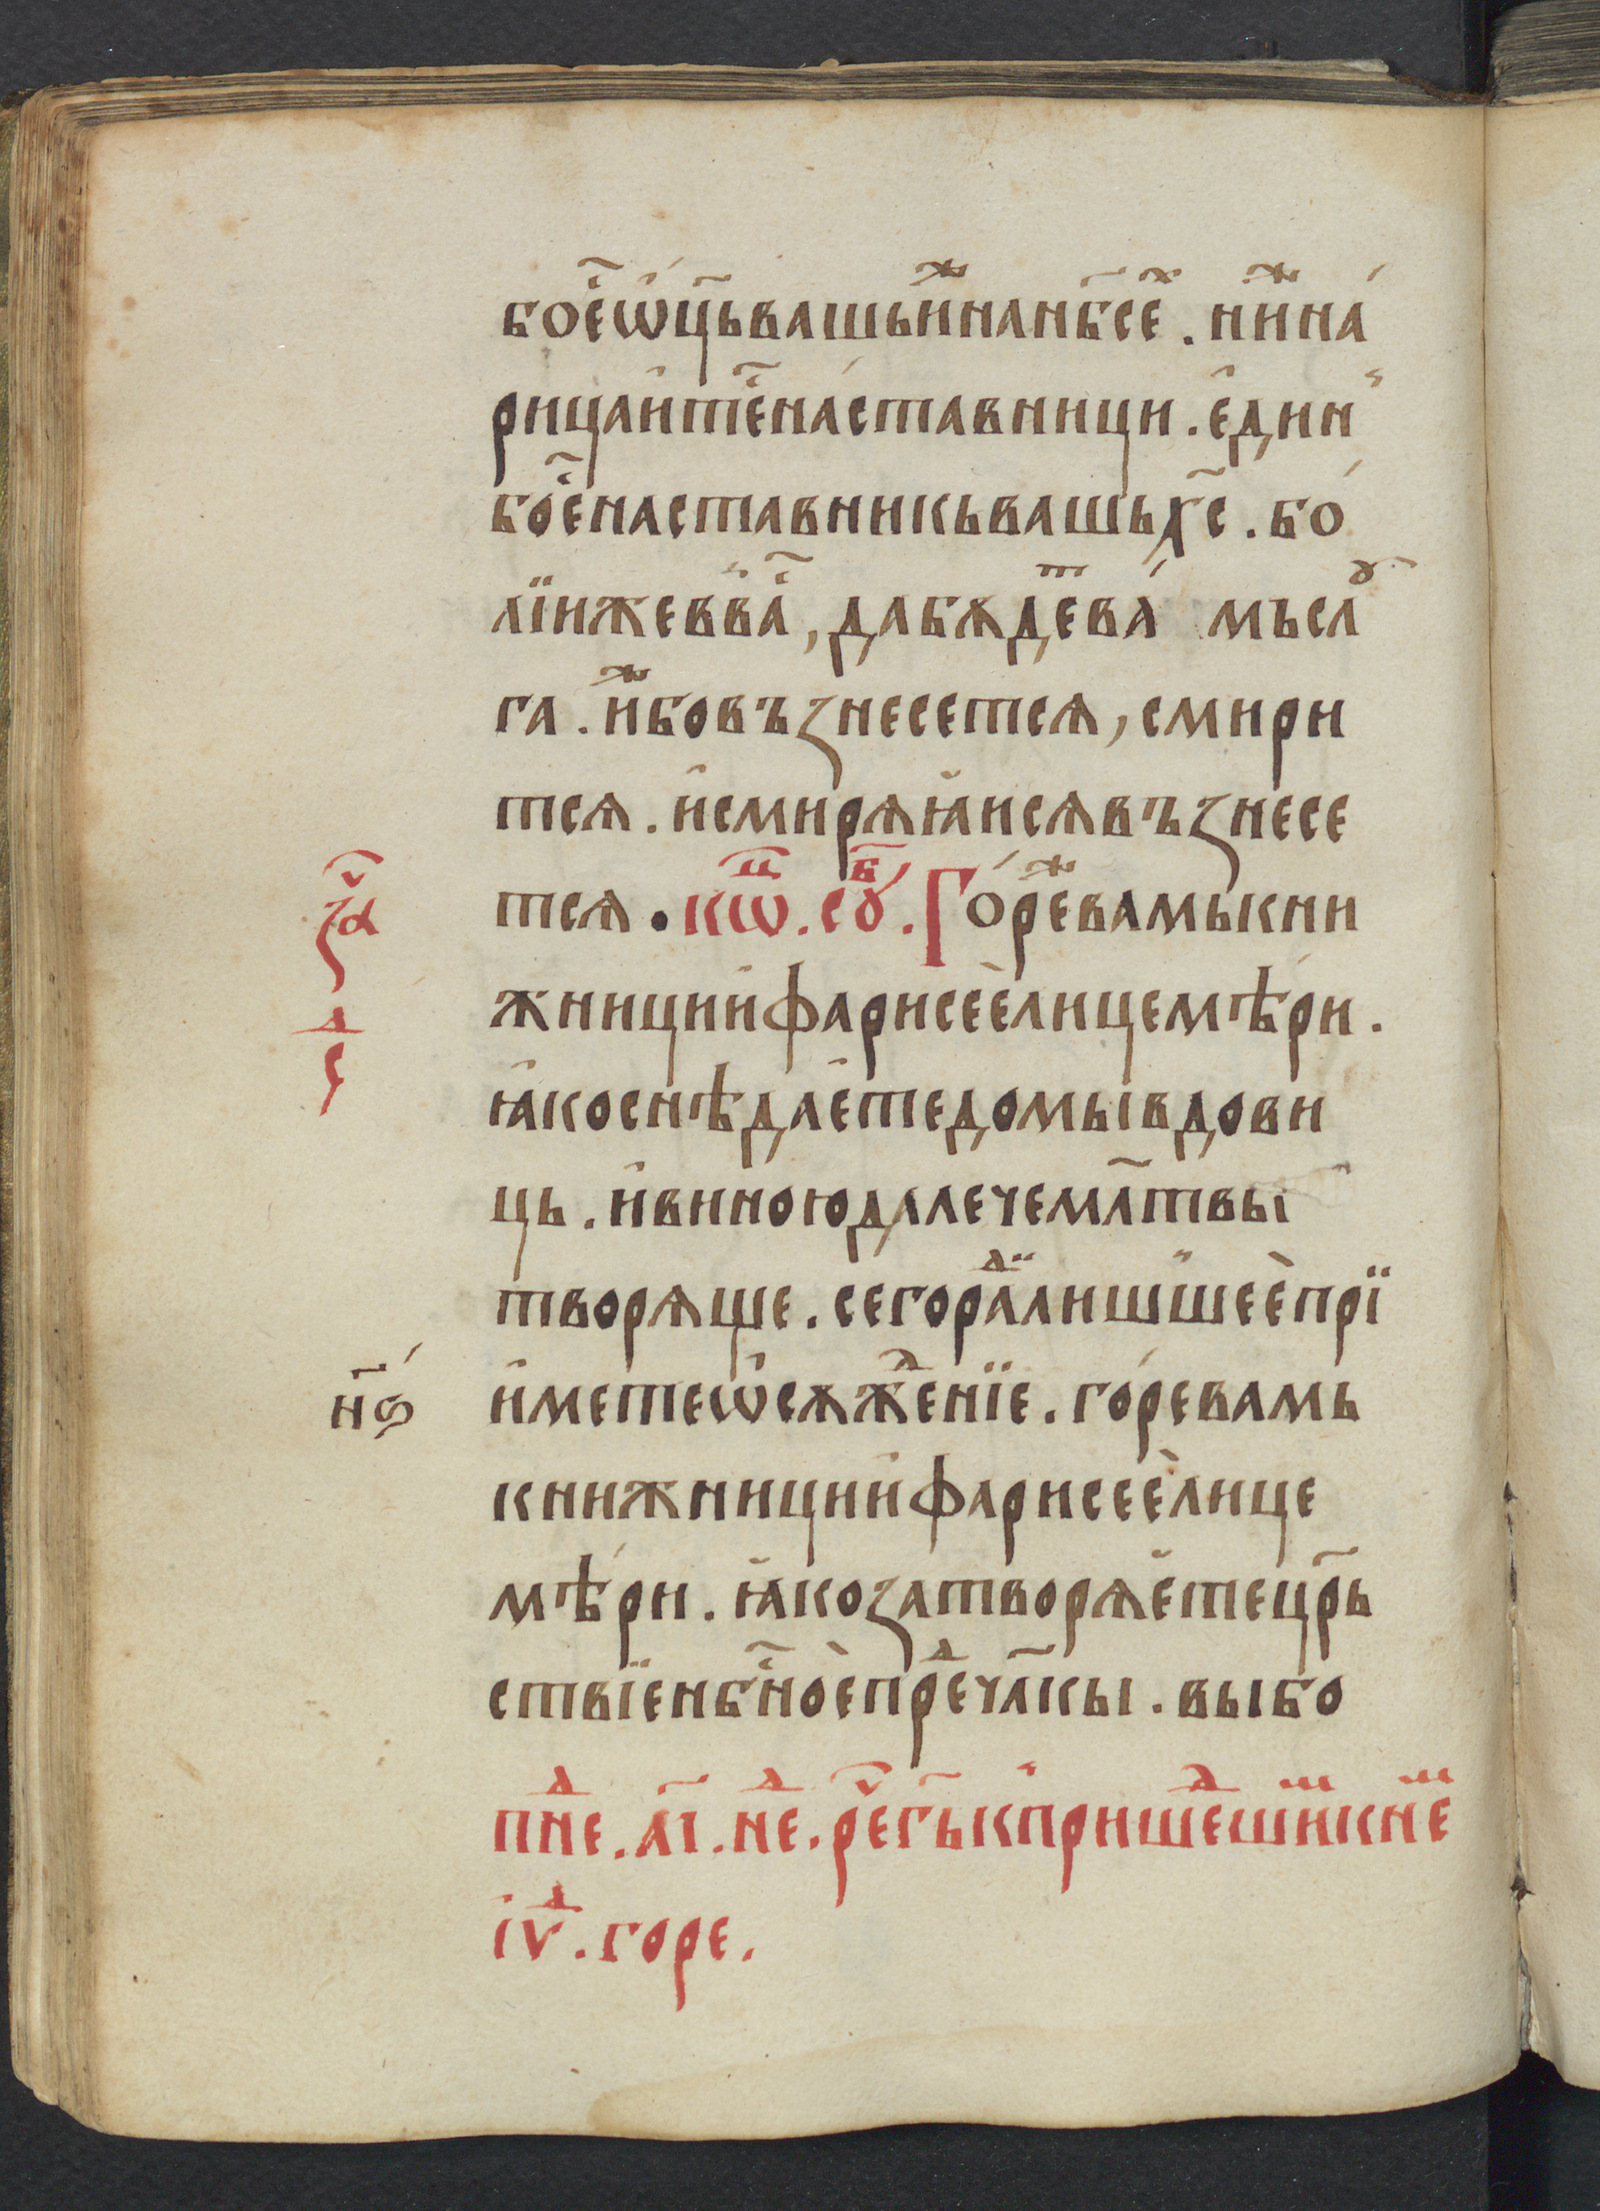 бо е҆⁭с҇ ѡ҆ц҃ь вашь иⷤ на нб҃сеⷯ . ниⷤ на́
рицаи҆те сⷷ наставници . е҆динь
бо е҆с҇ наставникь вашь х҃с . бо́
лїи же в ва́с҇ , да бѫдеⷮ вамъ слꙋ
га . иⷤ бо възнесетсѧ , смири
тсѧ . и҆ смирѧꙗ҆и сѧ възнесе
тсѧ . кѡⷰ . сꙋⷠ . Го́реⷤ вамь кни
жници и҆ фарисее҆ лицемѣри .
ꙗ҆ко снѣдае҆те домы вдови
ць . и҆ виною далече мл҃твы
творѧще . сего раⷣ лишшее҆ прї
и҆мете ѡ҆сѫжⷣенїе . го́ре вамь
книжници и҆ фарисее҆ лице
мѣри . ꙗ҆ко затворѧе҆те цр҃ь
ствїе нб҃с҇ное҆ преⷣ чл҃кы . вы бо
зⷱ҇а
сⷣ
н҃ѕ
пнеⷣ . а҃і . неⷣ . реⷱ҇ гь к пришеⷣшиⷨ к неⷨ
іѵⷣ . горе .